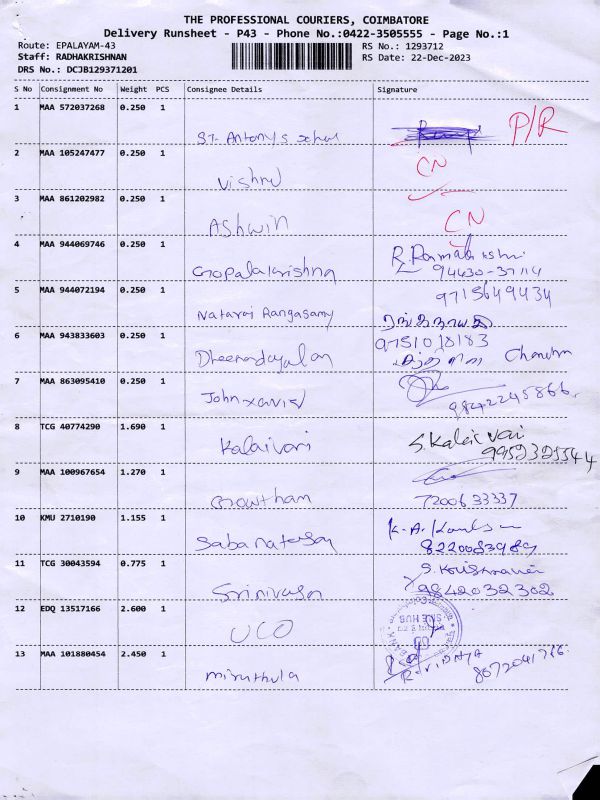 THE PROFESSIONAL COURIERS, COIMBATORE
Delivery Runsheet - P43 - Phone No.:0422-3505555 - Page No.:1
Route: EPALAYAM-43
RS No.: 1293712
Staff: RADHAKRISHNAN
RS Date: 22-Dec-2023
DRS No.: DCJB129371201
S No Consignment No Weight PCS Consignee Details Signature
1 MAA 572037268 0.250 1 P/R
ST. Antony's
2 MAA 105247477 0.250 1 CN
Vishnu
3 MAA 861202982 0.250 1 CN
Ashwin
4 MAA 944069746 0.250 1
Gopalakrishna 94430-37114
5 MAA 944072194 0.250 1 9715649434
Nataraj Rangasamy
6 MAA 943833603 0.250 1
Dheenadayalan
7 MAA 863095410 0.250 1
John xavier 9842245866
8 TCG 40774290 1.690 1 S. Kalaivani
Kalaivani
9 MAA 100967654 1.270 1
Gowtham 7200633337
10 KMU 2710190 1.155 1
Sabanatesan 8220083989
11 TCG 30043594 0.775 1
Srinivasan 9842032302
12 EDQ 13517166 2.600 1
UCO
13 MAA 101880454 2.450 1
miruthula